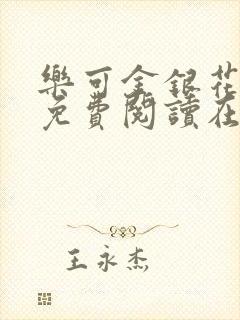 樂可金銀花
免費閱讀在
王永杰